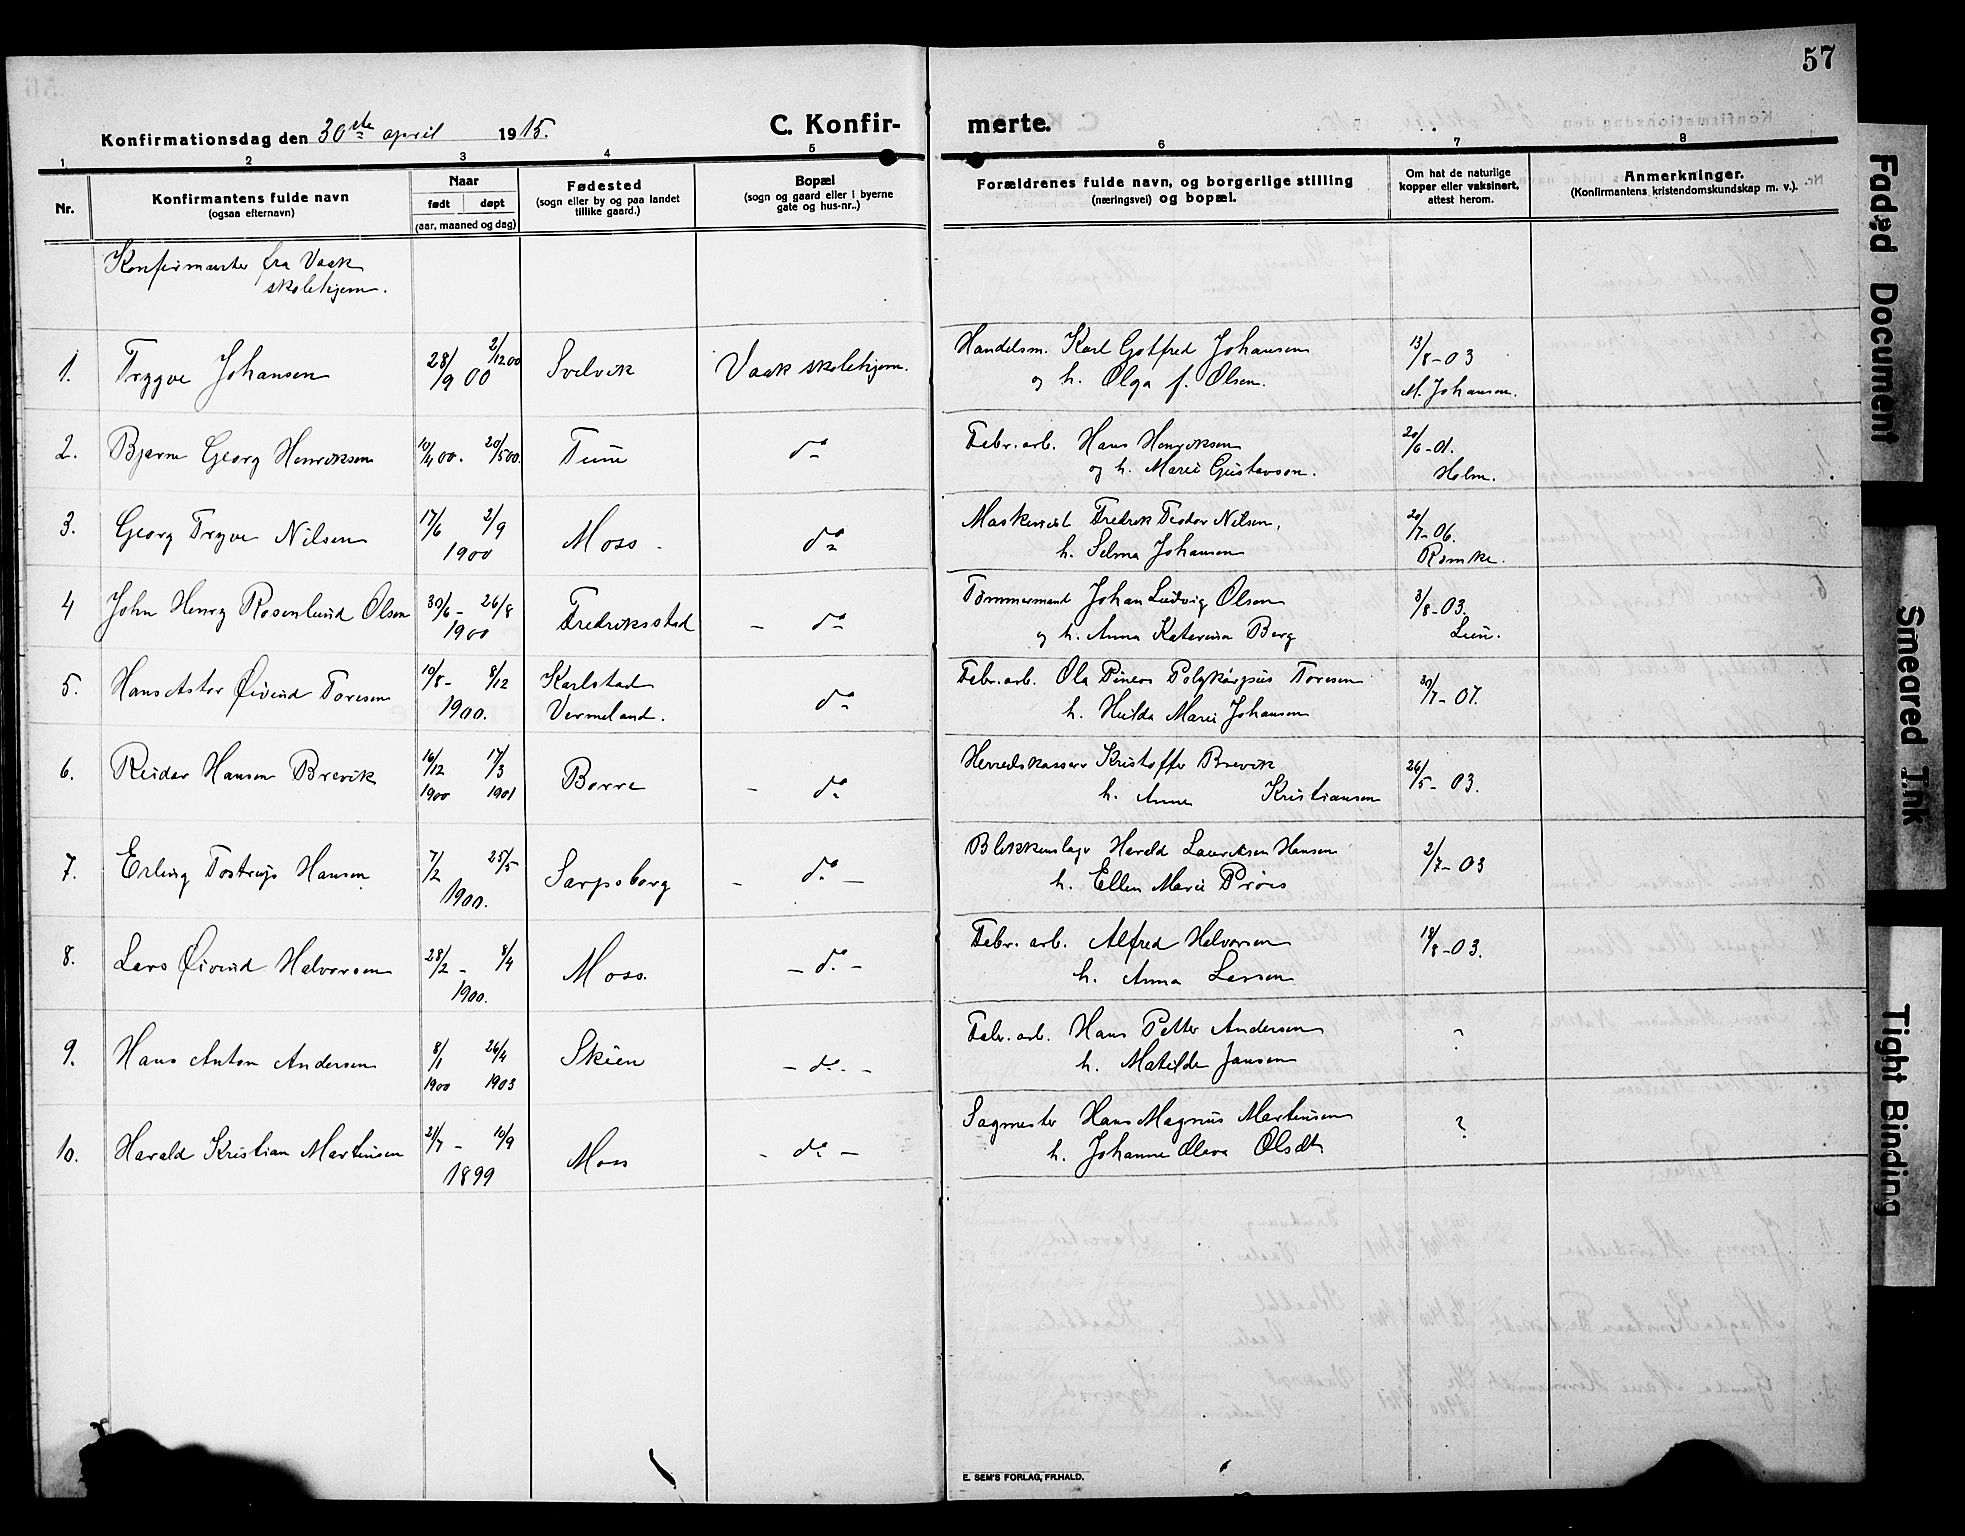 57
Konfirmationsdag den 30te april 1915.
C. Konfir-
merte.
1 2 3 4 5 6 7 8
Nr.
Konfirmantens fulde navn
(ogsaa efternavn)
Naar
født døpt
(aar, maaned og dag)
Fødested
(sogn eller by og paa landet
tillike gaard.)
Bopæl
(sogn og gaard eller i byerne
gate og hus-nr..)
Forældrenes fulde navn, og borgerlige stilling
(næringsvei) og bopæl.
Om hat de naturlige
kopper eller vaksinert,
attest herom.
Anmerkninger.
(Konfirmantens kristendomskundskap m. v.).
Konfirmanter fra Vaak
skolehjem.
1. Trygve Johansen 28/9 00 2/12 00 Svelvik Vaak skolehjem. Handelsm. Karl Gotfred Johansen 13/8-03
og h. Olga f. Olsen. M. Johansen.
2. Bjarne Georg Henriksen 10/4 00. 20/5 00. Tune do Fabr. arb. Hans Henriksen 20/6-01.
og h. Marie Gustavson. Holm.
3. Georg Trygve Nilsen 17/6 2/9 Moss. do Maskinist Fredrik Teodor Nilsen, 20/7-06.
1900 h. Selma Johansen Rømke.
4 John Henry Rosenlund Olsen 30/6 - 26/8 Fredriksstad - do Tømmermand Johan Ludvig Olsen 3/8-03.
1900 og h. Anna Katerina Berg Lun.
5. Hans Astor Øivind Toresen 10/8- 8/12 Karlstad do Fabr. arb. Ola Pineos Polykarpus Toresen 30/7-07.
1900. Vermeland. h. Hulda Marie Johansen
6. Reidar Hansen Brevik 16/12 17/3 Borre - do Herredskasserer Kristoffer Brevik 26/5-03.
1900 1901 h. Anne Kristiansen
7. Erling Tostrup Hansen 7/2 25/5 Sarpsborg - do - Blikkenslager Harald Lauritsen Hansen 2/7-03
1900. h. Ellen Marie Prøis
8. Lars Øivind Halvorsen 28/2 - 8/4 Moss. - do - Fabr. arb. Alfred Halvorsen 18/8-03.
1900. h. Anna Larsen
9. Hans Anton Andersen 8/1 26/4 Skien - do - Fabr. arb. Hans Petter Andersen ?
1900 1903 h. Matilde Jansen
10. Harald Kristian Martinsen 21/7 - 10/9 Moss - do - Sagmester Hans Magnus Martinsen ?
1899 h. Johanne Oleva Olsdt
E. SEM'S FORLAG, FR.HALD.
Faded Document
Smeared Ink
Tight Binding